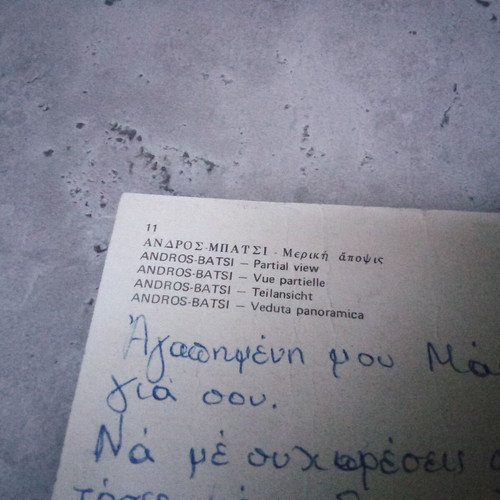 11
ΑΝΔΡΟΣ-ΜΠΑΤΣΙ - Μερικὴ ἄποψις
ANDROS-BATSI — Partial view
ANDROS-BATSI — Vue partielle
ANDROS-BATSI — Teilansicht
ANDROS-BATSI — Veduta panoramica
Ἀγαπημένη μου Μά
γιά σου.
Νά μέ συχωρέσεις